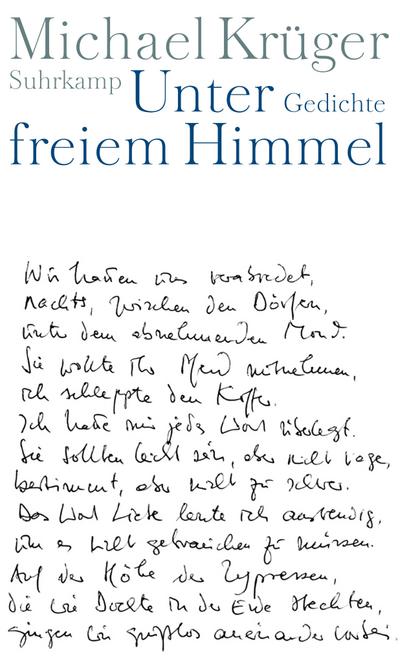 Michael Krüger
Suhrkamp Unter Gedichte
freiem Himmel
Wir hatten uns verabredet,
nachts, zwischen den Dörfern,
unter dem abnehmenden Mond.
Sie wollte Ihr Pferd mitnehmen,
ich schleppte den Koffer.
Ich hatte mir jedes Wort überlegt.
Sie sollten leicht sein, aber nicht vage,
bestimmt, aber nicht zu schwer.
Das Wort Liebe lernte ich auswendig,
um es nicht gebrauchen zu müssen.
Auf der Höhe der Zypressen,
die wie Dochte in der Erde steckten,
gingen wir grußlos aneinander vorbei.